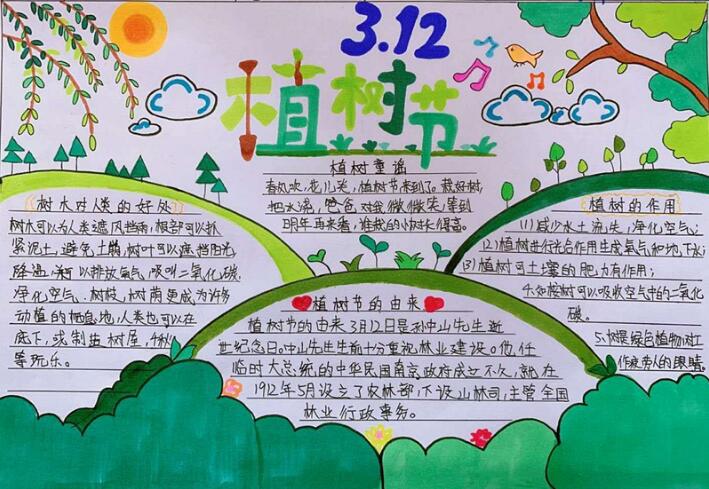 3.12
植树节
植树童谣
春风吹,花儿笑,植树节来到了。栽好树,
把水浇,爸爸对我微微笑,等到
明年再来看,谁我的小树长得高。
树木对人类的好处
树木可以为人类遮风挡雨,根部可以抓
紧泥土,避免土崩,树叶可以遮挡阳光,
降温,和以排放氧气,吸叫二氧化碳,
净化空气,树枝、树荫更成为许多
动植的栖息地,人类也可以在
底下,或制造树屋、秋千
等玩乐。
植树的作用
(1)减少水土流失,净化空气;
(2)植树进行光合作用生成氧气和地下水;
(3)植树可土壤的肥力有作用;
4.如桉树可以吸收空气中的二氧化
碳。
5.树是绿色植物对工
作疲劳人的眼睛。
植树节的由来
植树节的由来3月12日是孙中山先生逝
世纪念日。中山先生生前十分重视林业建设。他任
临时大总统的中华民国南京政府成立不久,就在
1912年5月设立了农林部,下设山林司,主管全国
林业行政事务。